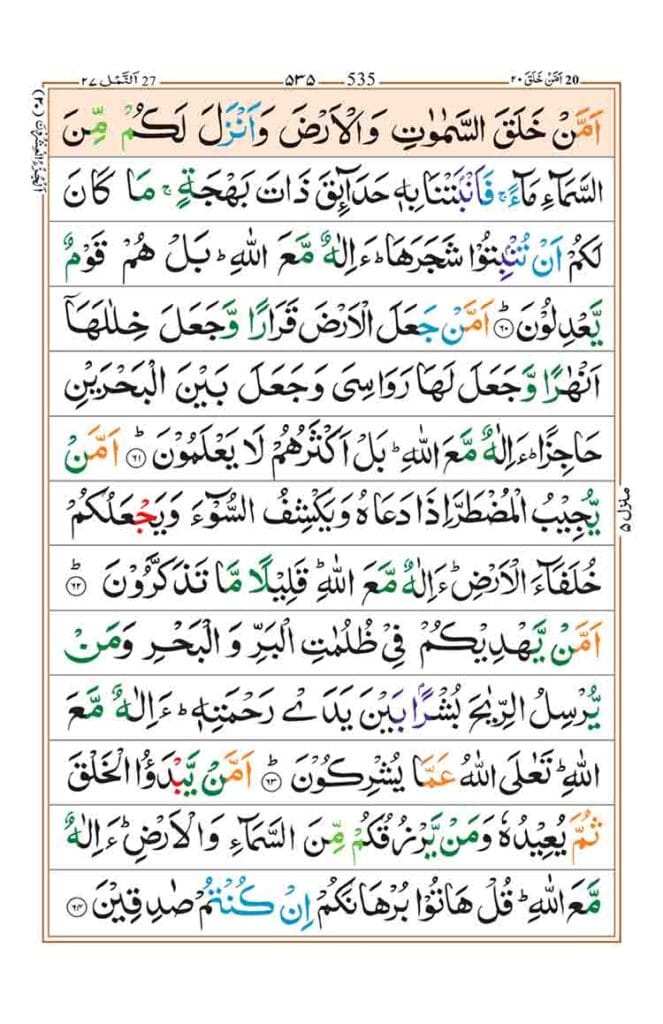 اَمَّنْ خَلَقَ ٢٠ 20 ٥٣٥ 535 اَلنَّمْل ٢٧ 27
اَمَّنْ خَلَقَ السَّمٰوٰتِ وَالْاَرْضَ وَاَنْزَلَ لَكُمْ مِّنَ
السَّمَآءِ مَآءً ۚ فَاَنْۢبَتْنَا بِهٖ حَدَآئِقَ ذَاتَ بَهْجَةٍ ۚ مَا كَانَ
لَكُمْ اَنْ تُنْۢبِتُوْا شَجَرَهَا ؕ ءَاِلٰهٌ مَّعَ اللّٰهِ ؕ بَلْ هُمْ قَوْمٌ
يَّعْدِلُوْنَ ؕ ﴿٦٠﴾ اَمَّنْ جَعَلَ الْاَرْضَ قَرَارًا وَّجَعَلَ خِلٰلَهَاۤ
اَنْهٰرًا وَّجَعَلَ لَهَا رَوَاسِىَ وَجَعَلَ بَيْنَ الْبَحْرَيْنِ
حَاجِزًا ؕ ءَاِلٰهٌ مَّعَ اللّٰهِ ؕ بَلْ اَكْثَرُهُمْ لَا يَعْلَمُوْنَ ؕ ﴿٦١﴾ اَمَّنْ
يُّجِيْبُ الْمُضْطَرَّ اِذَا دَعَاهُ وَيَكْشِفُ السُّوْٓءَ وَيَجْعَلُكُمْ
خُلَفَآءَ الْاَرْضِ ؕ ءَاِلٰهٌ مَّعَ اللّٰهِ ؕ قَلِيْلًا مَّا تَذَكَّرُوْنَ ؕ ﴿٦٢﴾
اَمَّنْ يَّهْدِيْكُمْ فِىْ ظُلُمٰتِ الْبَرِّ وَ الْبَحْرِ وَمَنْ
يُّرْسِلُ الرِّيٰحَ بُشْرًۢا بَيْنَ يَدَىْ رَحْمَتِهٖ ؕ ءَاِلٰهٌ مَّعَ
اللّٰهِ ؕ تَعٰلَى اللّٰهُ عَمَّا يُشْرِكُوْنَ ؕ ﴿٦٣﴾ اَمَّنْ يَّبْدَؤُا الْخَلْقَ
ثُمَّ يُعِيْدُهٗ وَمَنْ يَّرْزُقُكُمْ مِّنَ السَّمَآءِ وَالْاَرْضِ ؕ ءَاِلٰهٌ
مَّعَ اللّٰهِ ؕ قُلْ هَاتُوْا بُرْهَانَكُمْ اِنْ كُنْتُمْ صٰدِقِيْنَ ﴿٦٤﴾
اَلْجُزْءُ الْعِشْرُوْنَ (٢٠)
منزل ٥